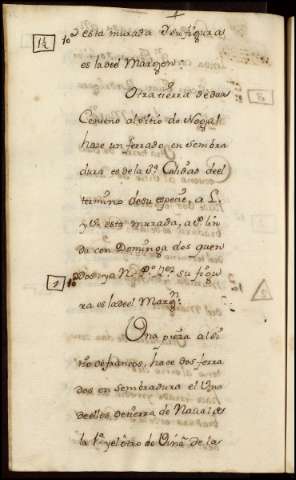 esta murada su figura
es la del Margen.
Otra tierra de dha
Cenuño al sitio do Nogal
haze un ferrado en sembra
dura es de la 2ª Calidad del
termino de su especie, a L.
y V. esta murada, a P. lin
da con Dominga dos quen
su figu
ra es la del Margn.
Una pieza al si
tio de francos, haze dos ferra
dos en sembradura el Uno
de ellos, de tierra de Naval, es
la 1ª y el otro de de las